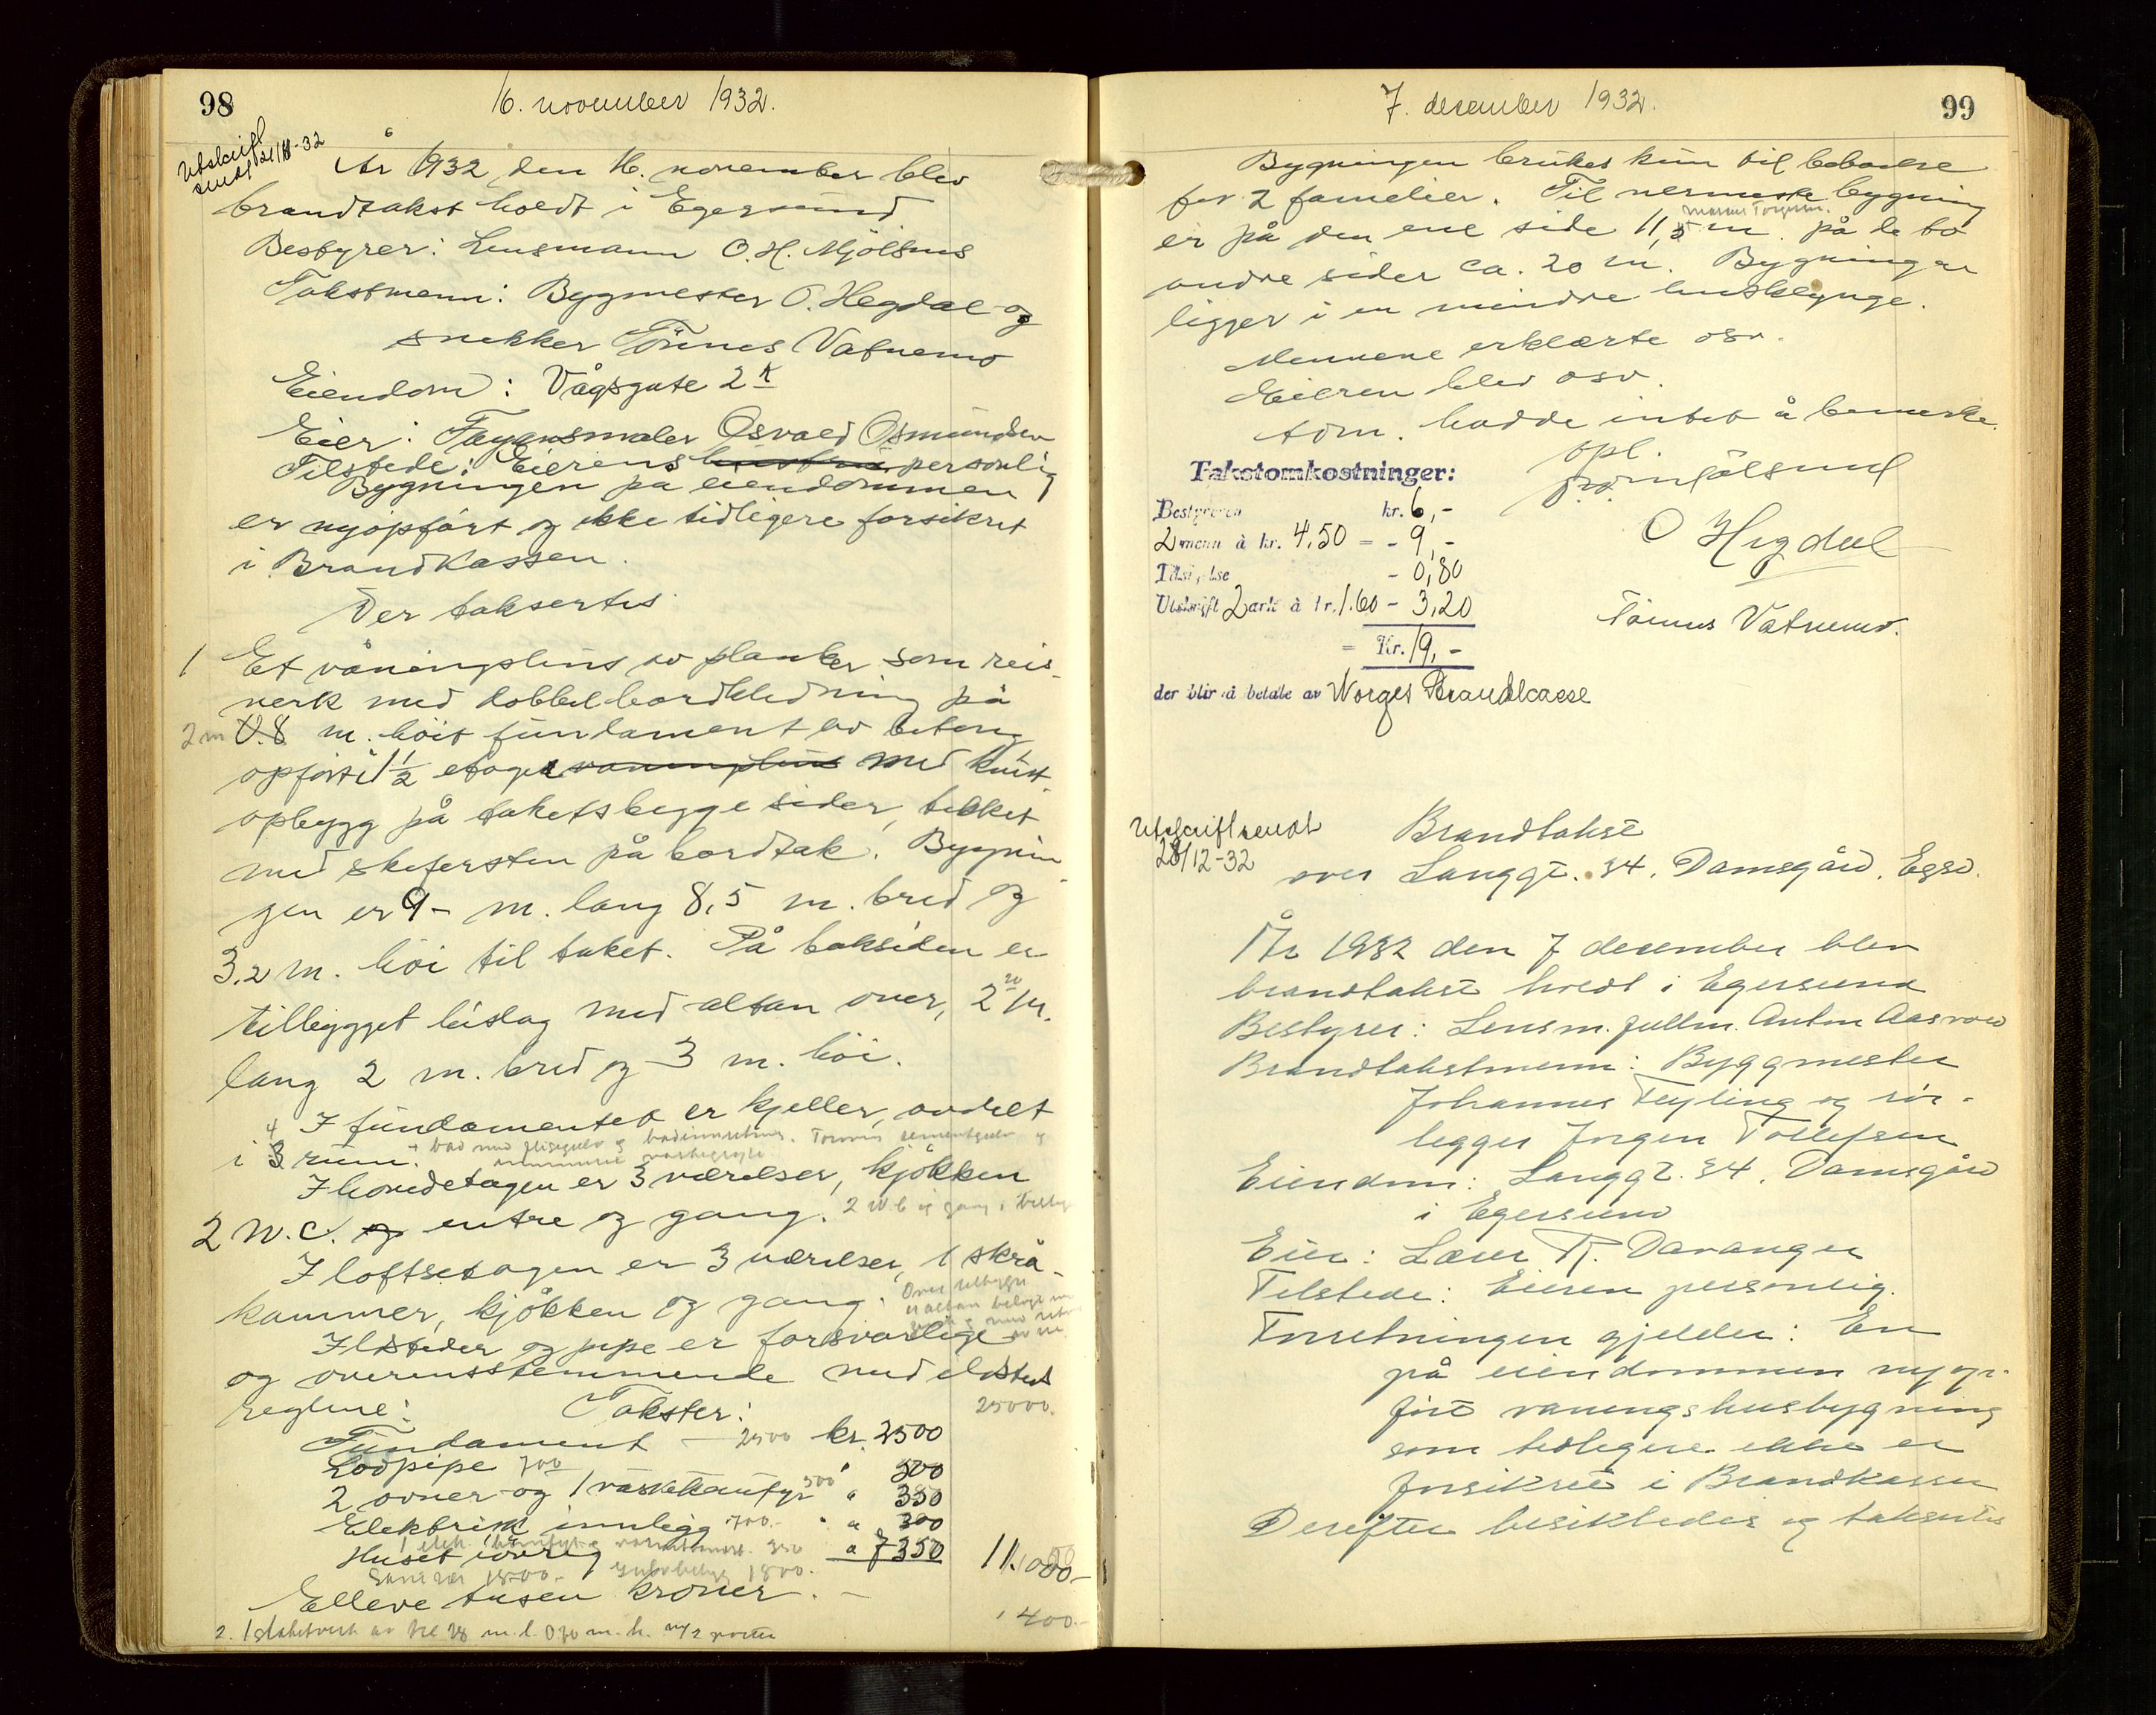 98
16. november 1932.
Utskrift
sendt 21/11-32
År 1932 den 16. november blev
brandtakst holdt i Egersund
Bestyrer: Lensmann O. H. Mjölsnes
Takstmenn: Bygmester O. Hegdal og
snekker Tönnes Vatnemo
Eiendom: Vågsgate 2 K
Eier: Fayansmaler Osvald Osmundsen
Tilstede: Eierens hustru personlig
Bygningen på eiendommen
er nyopfört og ikke tidligere forsikret
i Brandkassen.
Der taksertes
1 Et våningshus av planker som reis-
verk med dobbel bordkledning på
2 m 0.8 m. höit fundament av betong
opfört i 1 1/2 etage vaaningshus med kvist-
opbygg på takets begge sider, tekket
med skifersten på bordtak. Bygnin-
gen er 9- m. lang 8,5 m. bred og
3,2 m. höi til taket. På baksiden er
tilbygget bislag med altan over, 2,20 m.
lang 2 m. bred og 3 m. höi.
I fundamentet er kjeller, avdelt
i 3 4 rum. + bad med flisegulv og badinnretning.
I hovedetagen er 3 værelser, kjökken
2 W.C. og entre og gang. 2 W.C. og gang i tilbygg
I loftsetagen er 3 værelser, 1 skrå-
kammer, kjökken og gang. Over tilbygget
er altan belagt
Ildsteder og pipe er forsvarlige
og overensstemmende med ildsteds
reglene: Takster: 25000.
Fundament – 2500 kr. 2500
Lodpipe 700 " 500
2 ovner og 1 vaskekaut 500 " 350
Elektrisk innlegg 700.- " " 300
Huset iövrig " 7350 11.000-
Elleve tusen kroner. –
2. 1 stakitverk av tre 28 m. l. 0,90 m. h. m/2 porter 400.-
7. desember 1932.
99
Bygningen brukes kun til beboelse
for 2 familier. Til nermeste bygning
er på den ene side 11,5 m. på de to
andre sider ca. 20 m. Bygningen
ligger i en mindre husklynge.
Mennene erklærte osv.
Eieren blev osv.
som. hadde intet å bemerke.
opl.
Takstomkostninger:
Bestyreren kr. 6,-
2 menn à kr. 4,50 = - 9,-
Tilsigelse - 0,80
Utskrift 2 ark à kr. 1.60 - 3,20
= Kr. 19,-
der blir å betale av Norges Brandkasse
O Hegdal
Tönnes Vatnemo.
Utskrift sendt
28/12-32
Brandtakst
over Langgt. 34, Damsgård, Egsd.
År 1932 den 7 desember blev
brandtakst holdt i Egersund
Bestyrer: Lensm. fullm. Anton Aasvold
Brandtakstmenn: Byggmester
Johannes Tengling og rör-
legger Jörgen Tollefsen
Eiendom: Langgt. 34, Damsgård
i Egersund
Eier: Lærer R. Davanger
Tilstede: Eieren personlig.
Forretningen gjelder: En
på eiendommen nyop-
fört våningshusbygning
som tidligere ikke er
forsikret i Brandkassen
Derefter besiktedes og taksertes